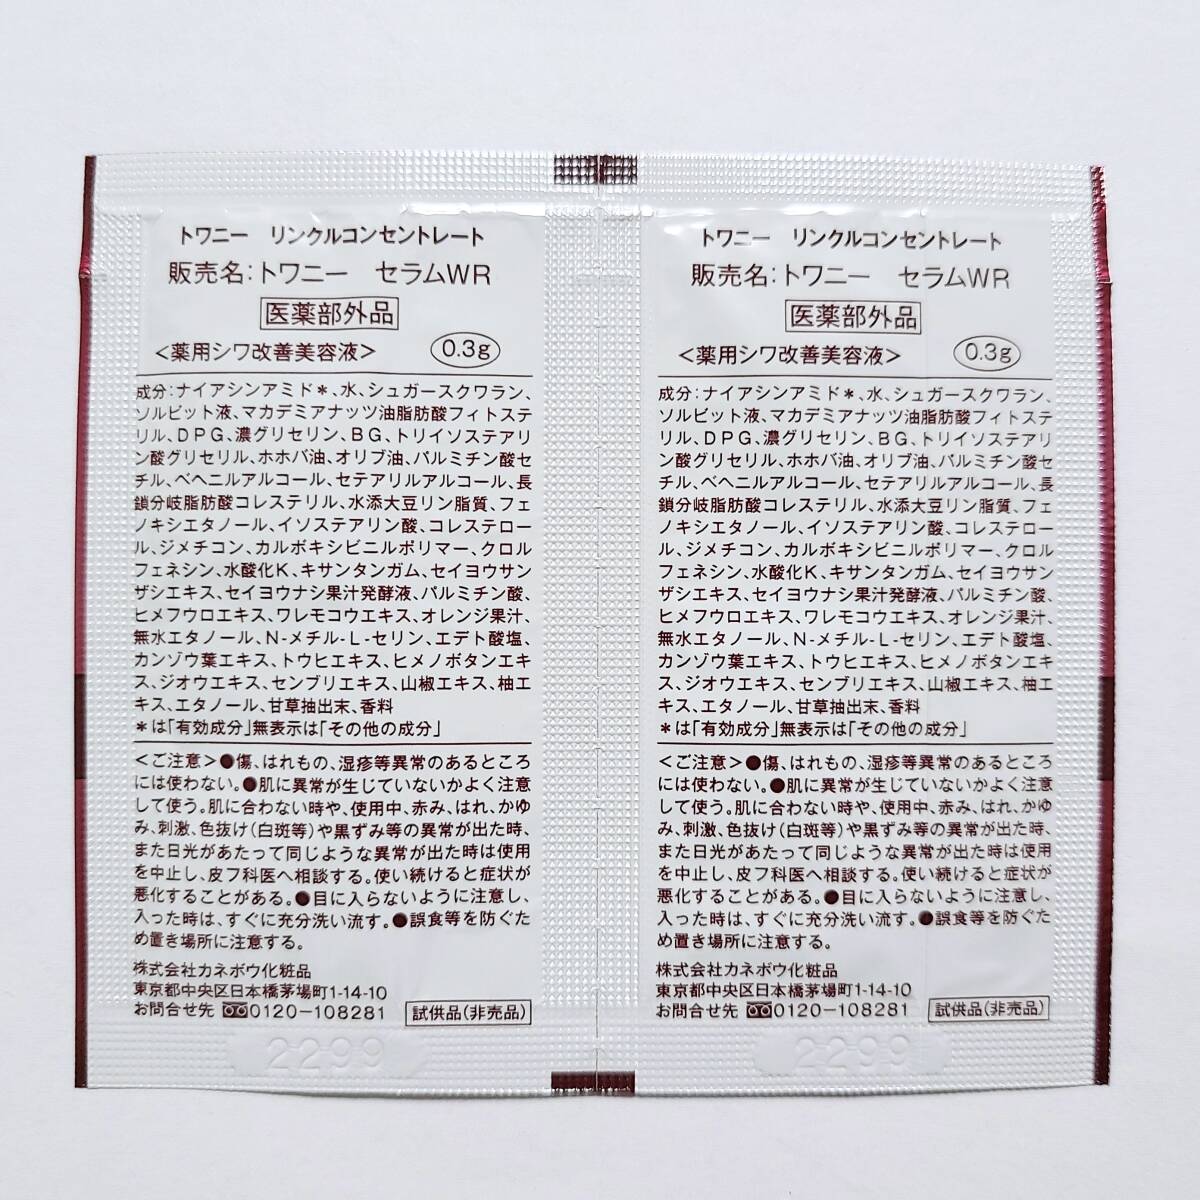 トワニー　リンクルコンセントレート
販売名：トワニー　セラムWR
医薬部外品
＜薬用シワ改善美容液＞ 0.3g
成分：ナイアシンアミド＊、水、シュガースクワラン、
ソルビット液、マカデミアナッツ油脂肪酸フィトステ
リル、DPG、濃グリセリン、BG、トリイソステアリ
ン酸グリセリル、ホホバ油、オリブ油、パルミチン酸セ
チル、ベヘニルアルコール、セテアリルアルコール、長
鎖分岐脂肪酸コレステリル、水添大豆リン脂質、フェ
ノキシエタノール、イソステアリン酸、コレステロー
ル、ジメチコン、カルボキシビニルポリマー、クロル
フェネシン、水酸化K、キサンタンガム、セイヨウサン
ザシエキス、セイヨウナシ果汁発酵液、パルミチン酸、
ヒメフウロエキス、ワレモコウエキス、オレンジ果汁、
無水エタノール、N-メチル-L-セリン、エデト酸塩、
カンゾウ葉エキス、トウヒエキス、ヒメノボタンエキ
ス、ジオウエキス、センブリエキス、山椒エキス、柚エ
キス、エタノール、甘草抽出末、香料
＊は「有効成分」無表示は「その他の成分」
＜ご注意＞●傷、はれもの、湿疹等異常のあるところ
には使わない。●肌に異常が生じていないかよく注意
して使う。肌に合わない時や、使用中、赤み、はれ、かゆ
み、刺激、色抜け（白斑等）や黒ずみ等の異常が出た時、
また日光があたって同じような異常が出た時は使用
を中止し、皮フ科医へ相談する。使い続けると症状が
悪化することがある。●目に入らないように注意し、
入った時は、すぐに充分洗い流す。●誤食等を防ぐた
め置き場所に注意する。
株式会社カネボウ化粧品
東京都中央区日本橋茅場町1-14-10
お問合せ先 0120-108281 試供品（非売品）
2299
トワニー　リンクルコンセントレート
販売名：トワニー　セラムWR
医薬部外品
＜薬用シワ改善美容液＞ 0.3g
成分：ナイアシンアミド＊、水、シュガースクワラン、
ソルビット液、マカデミアナッツ油脂肪酸フィトステ
リル、DPG、濃グリセリン、BG、トリイソステアリ
ン酸グリセリル、ホホバ油、オリブ油、パルミチン酸セ
チル、ベヘニルアルコール、セテアリルアルコール、長
鎖分岐脂肪酸コレステリル、水添大豆リン脂質、フェ
ノキシエタノール、イソステアリン酸、コレステロー
ル、ジメチコン、カルボキシビニルポリマー、クロル
フェネシン、水酸化K、キサンタンガム、セイヨウサン
ザシエキス、セイヨウナシ果汁発酵液、パルミチン酸、
ヒメフウロエキス、ワレモコウエキス、オレンジ果汁、
無水エタノール、N-メチル-L-セリン、エデト酸塩、
カンゾウ葉エキス、トウヒエキス、ヒメノボタンエキ
ス、ジオウエキス、センブリエキス、山椒エキス、柚エ
キス、エタノール、甘草抽出末、香料
＊は「有効成分」無表示は「その他の成分」
＜ご注意＞●傷、はれもの、湿疹等異常のあるところ
には使わない。●肌に異常が生じていないかよく注意
して使う。肌に合わない時や、使用中、赤み、はれ、かゆ
み、刺激、色抜け（白斑等）や黒ずみ等の異常が出た時、
また日光があたって同じような異常が出た時は使用
を中止し、皮フ科医へ相談する。使い続けると症状が
悪化することがある。●目に入らないように注意し、
入った時は、すぐに充分洗い流す。●誤食等を防ぐた
め置き場所に注意する。
株式会社カネボウ化粧品
東京都中央区日本橋茅場町1-14-10
お問合せ先 0120-108281 試供品（非売品）
2299